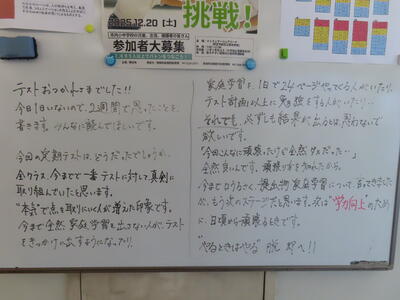 2025.12.20(土)
挑戦!
参加者大募集
テストおつかれさまでした!!
今日1日いないので、2週間で思ったことを
書きます。みんなに読んでほしいです。
今回の定期テストは、どうだったでしょうか。
全クラス、今までで一番テストに対して真剣に
取り組んでいたと思います。
"本気"で点を取りにいく人が増えた印象です。
今まで全然、家庭学習を出さない人が、テスト
をきっかけに出すようになったり、
家庭学習を、1日で24ページやってくる人がいたり、
テスト計画以上に勉強をする人がいたり…
それでも、必ずしも結果が出るとは思わないで
欲しいです。
「今回こんなに頑張ったけど全然ダメだった…」
全然良いんです。頑張り方を知れたから。
今まで口うるさく、提出物、家庭学習について言ってきました
が、もう次のステージだと思います。次は"学力向上"のため
に、日頃から頑張るときです。
"やるときはやる"脱却へ!!